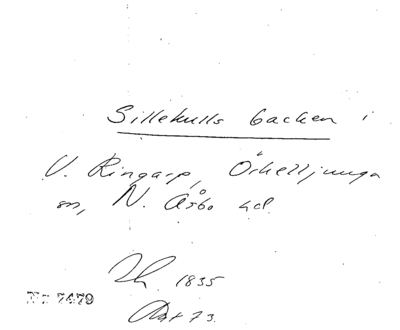 Sillekulls backen i
V. Ringarp, Örkelljunga
sn, N. Åsbo hd.
1835
No 7479
73.